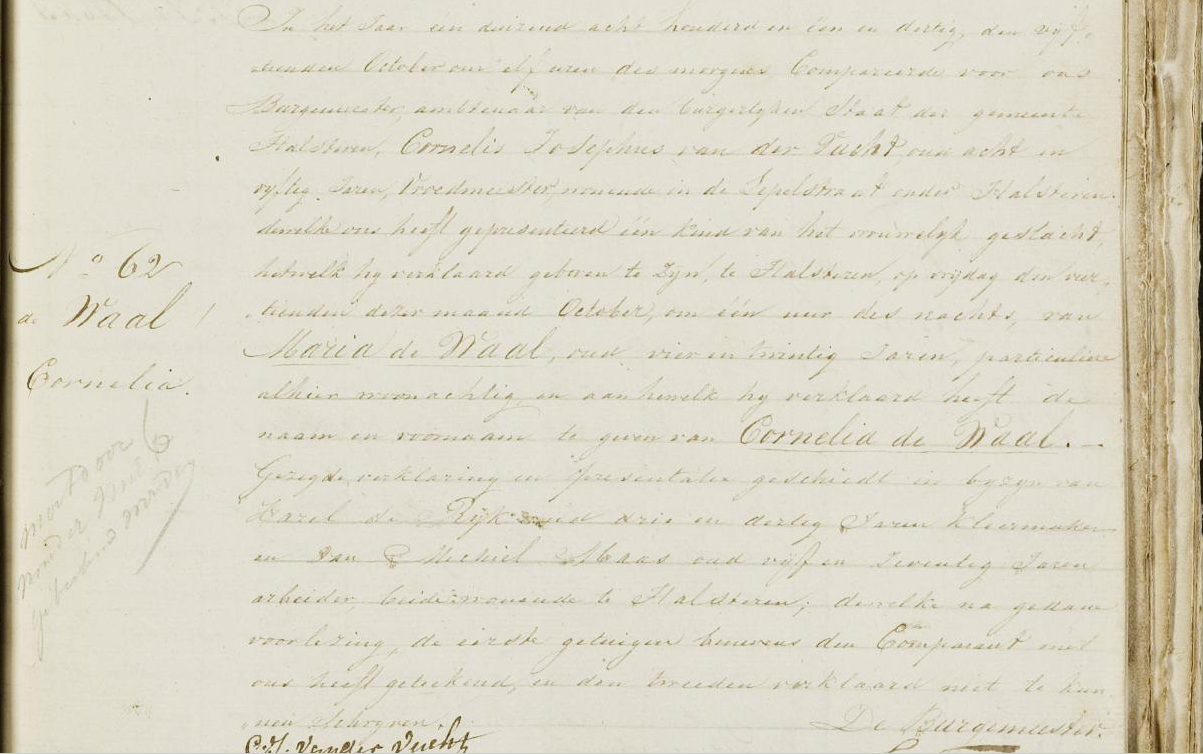 In het Jaar een duizend acht honderd en één en dertig, den vijf-
tienden October om elf uren des morgens, Compareerde voor ons
Burgemeester, ambtenaar van den burgerlyken Staat der gemeente
Halsteren, Cornelis Josephus van der Vucht, oud acht en
vyftig Jaren, Vroedmeester, wonende in de Lepelstraat onder Halsteren
dewelke ons heeft gepresenteerd één kind van het vrouwelyk geslacht,
hetwelk hy verklaard geboren te zyn, te Halsteren, op vrydag den veer-
No 62
tienden dezer maand October, om één uur des nachts, van
de Waal
Maria de Waal, oud vier en twintig Jaren, particuliere
Cornelia.
alhier woonachtig en aan hetwelk hy verklaard heeft de
naam en voornaam te geven van Cornelia de Waal.
Gezegde verklaring en presentatie geschiedt in byzyn van
Karel de Ryk oud drie en dertig Jaren Kleermaker
en van Michiel Maas oud vyf en Zeventig Jaren
arbeider, beide wonende te Halsteren; dewelke na gedane
voorlezing, de eerste getuigen benevens den Comparant met
ons heeft geteekend, en den tweeden verklaard niet te kun-
nen Schryven.
De Burgemeester.
C.J. van der Vucht
6